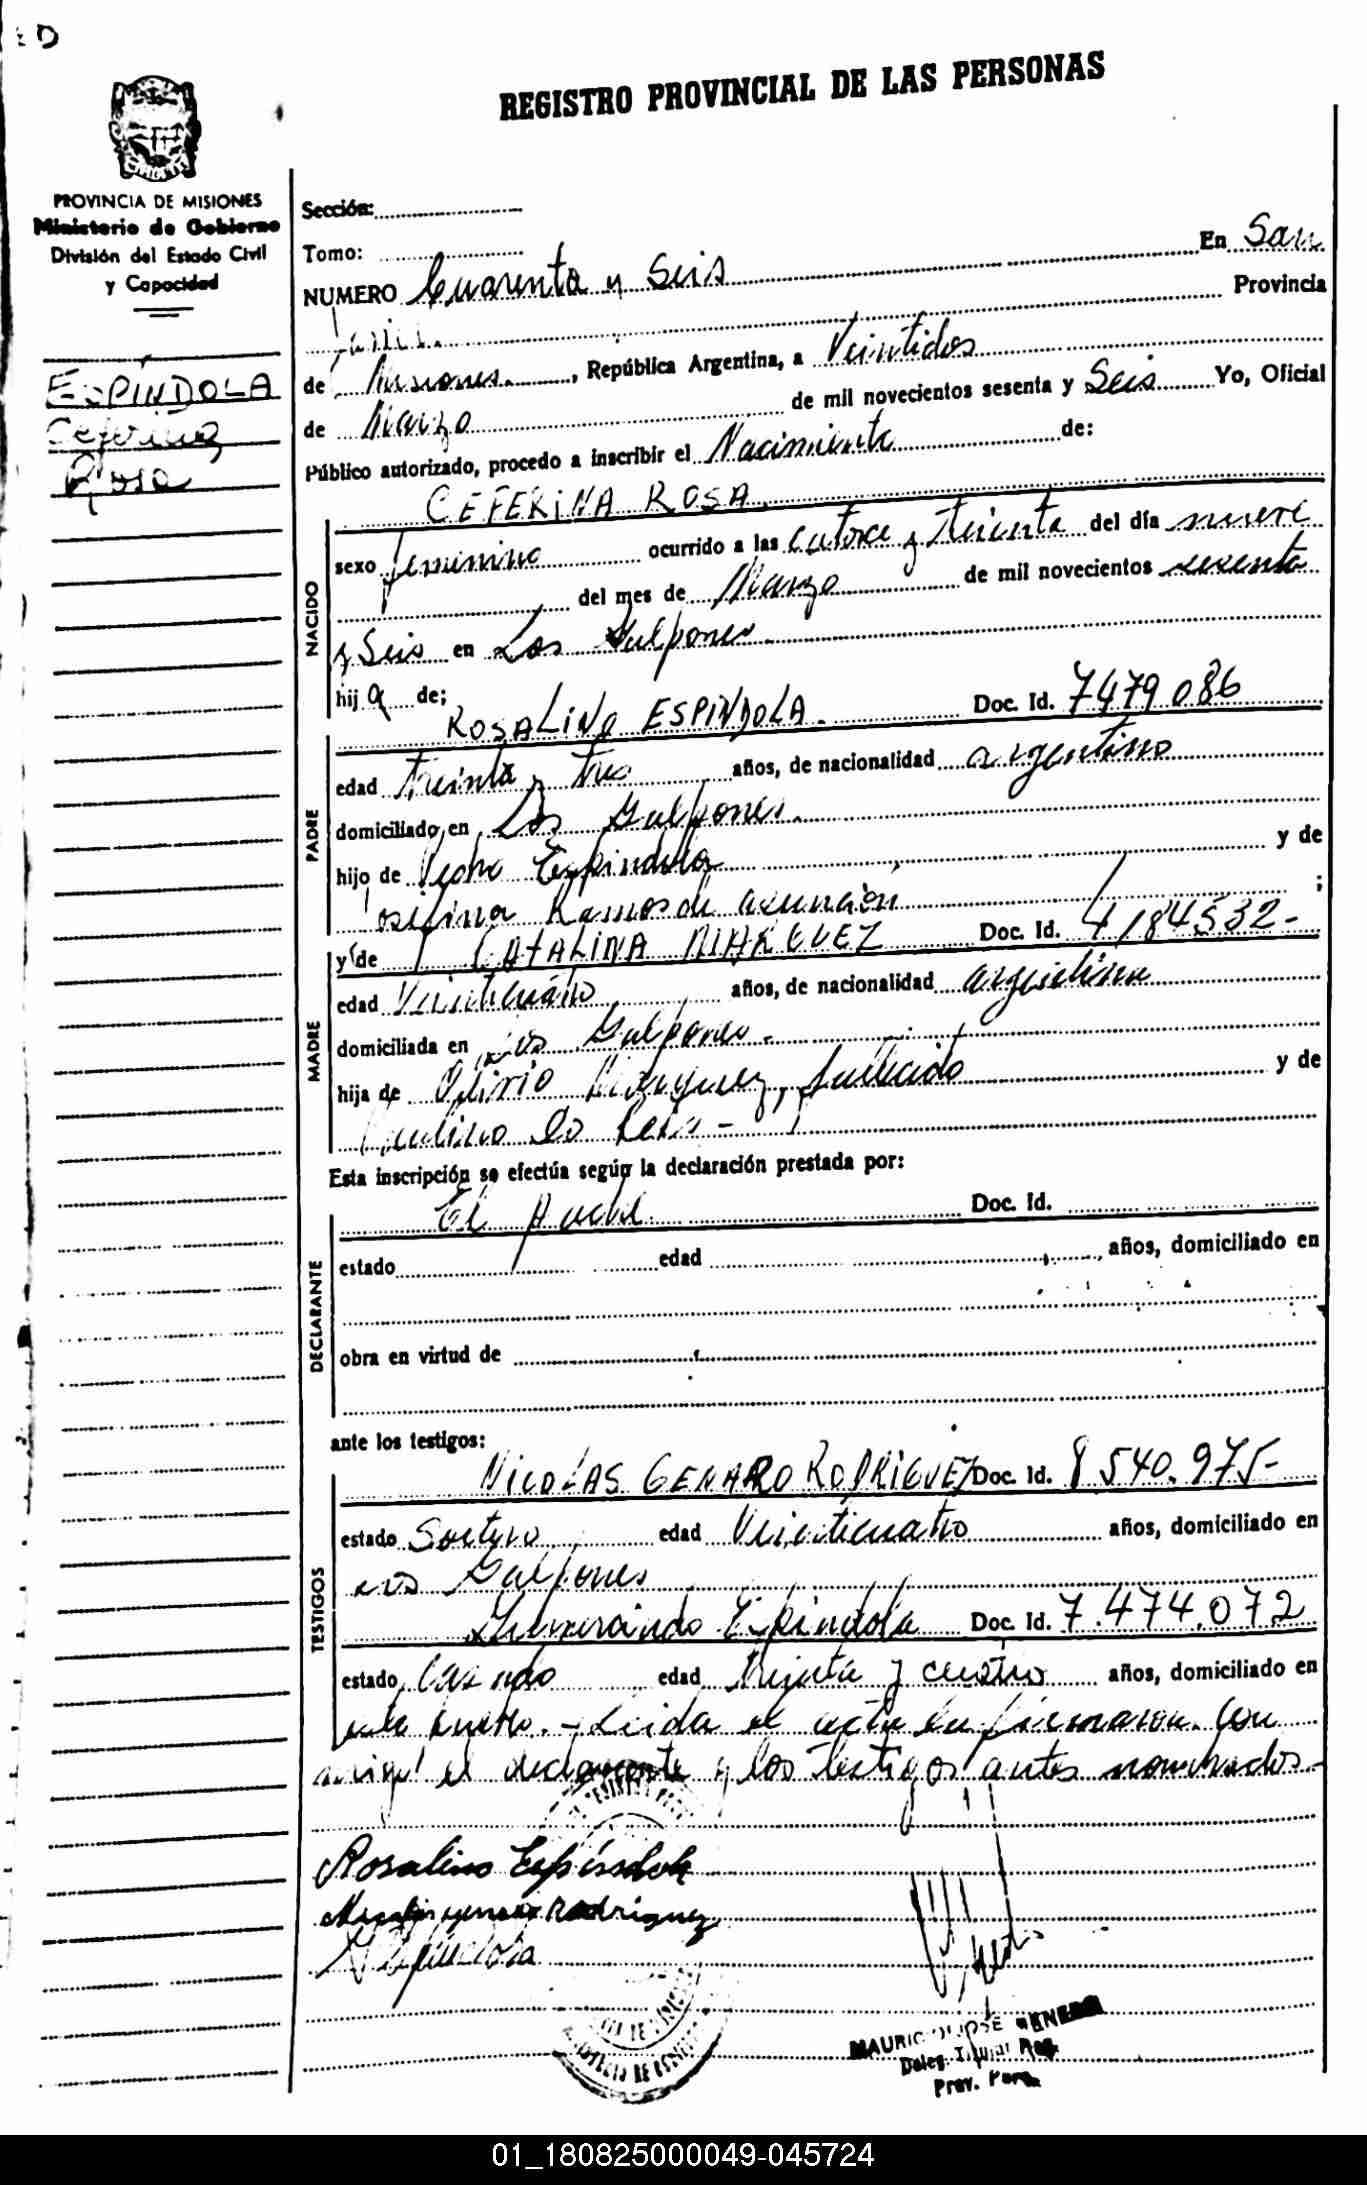 REGISTRO PROVINCIAL DE LAS PERSONAS
PROVINCIA DE MISIONES
Ministerio de Gobierno
División del Estado Civil
y Capacidad
ESPÍNDOLA
Ceferina
Rosa
Sección:
Tomo: En San
NUMERO Cuarenta y Seis Provincia
Javier.
de Misiones. , República Argentina, a Veintidos
de Marzo de mil novecientos sesenta y Seis Yo, Oficial
Público autorizado, procedo a inscribir el Nacimiento de:
CEFERINA ROSA.
NACIDO
sexo femenino ocurrido a las catorce y treinta del día nueve
del mes de Marzo de mil novecientos sesenta
y Seis en Los Galpones.
hija de; ROSALINO ESPINDOLA. Doc. Id. 7479086
PADRE
edad treinta y tres años, de nacionalidad argentino
domiciliado en Los Galpones.
hijo de Pedro Espindola y de
Josefina Ramos de asunción ;
y de CATALINA MARQUEZ Doc. Id. 4184532-
MADRE
edad Veinticuatro años, de nacionalidad argentina
domiciliada en Los Galpones.
hija de Marquez, fallecido y de
Esta inscripción se efectúa según la declaración prestada por:
El Padre Doc. Id.
DECLARANTE
estado edad años, domiciliado en
obra en virtud de
ante los testigos:
NICOLAS GENARO RODRIGUEZ Doc. Id. 8540.975-
TESTIGOS
estado Soltero edad Veinticuatro años, domiciliado en
Los Galpones
Gumercindo Espindola Doc. Id. 7.474.072
estado Casado edad treinta y cuatro años, domiciliado en
Leida el acta la firmaron con
migo el declarante y los testigos antes nombrados-
Rosalino Espíndola
Rodriguez
Espindola
MAURICIO JOSE
Deleg. Titular Reg.
Prov. Pers.
01_180825000049-045724